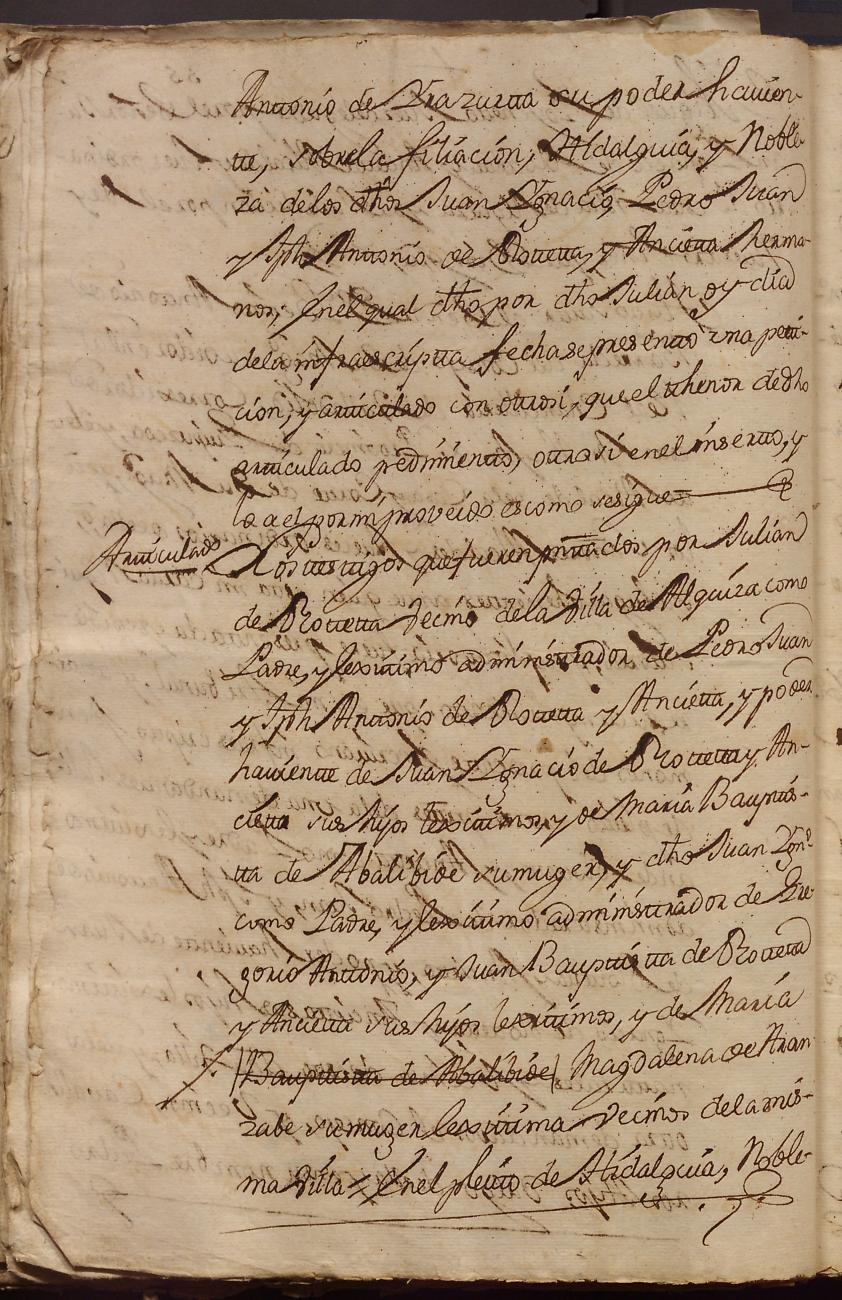 Antonio de Yrazuzta su poder havien-
te, sobre la filiación, Hidalguia, y Noble-
za de los dhos Juan Ygnacio, Pedro Juan
y Jph Antonio de Rotteta, y Ancieta herma-
nos; En el qual dho por dho Julian oy dia
de la infraescripta fecha se presentó una peti-
cion, y articulado con otrosi, que el thenor de dho
articulado pedimiento, otrasi en el inserto, y
lo a el por mi proveido es como se sigue=
Articulado
Los testigos que fueren pnttados por Julian
de Rotteta Vecino de la Villa de Alquiza como
Padre, y lexitimo administrador de Pedro Juan
y Jph Antonio de Rotteta y Ancietta, y poder
haviente de Juan Ygnacio de Rotteta y An-
cieta sus hijos lexitimos, y de Maria Baptis-
ta de Abalibide su muger, y dho Juan Ygn.º
como Padre, y lexitimo administrador de Gre-
gorio Antonio, y Juan Bauptista de Rotteta
y Ancieta sus hijos lexitimos, y de Maria
(Bauptista de Abalibide) Magdalena de Aran-
zabe su muger lexitima Vecinos de la mis-
ma Villa = En el pleito de Hidalguia, Noble-